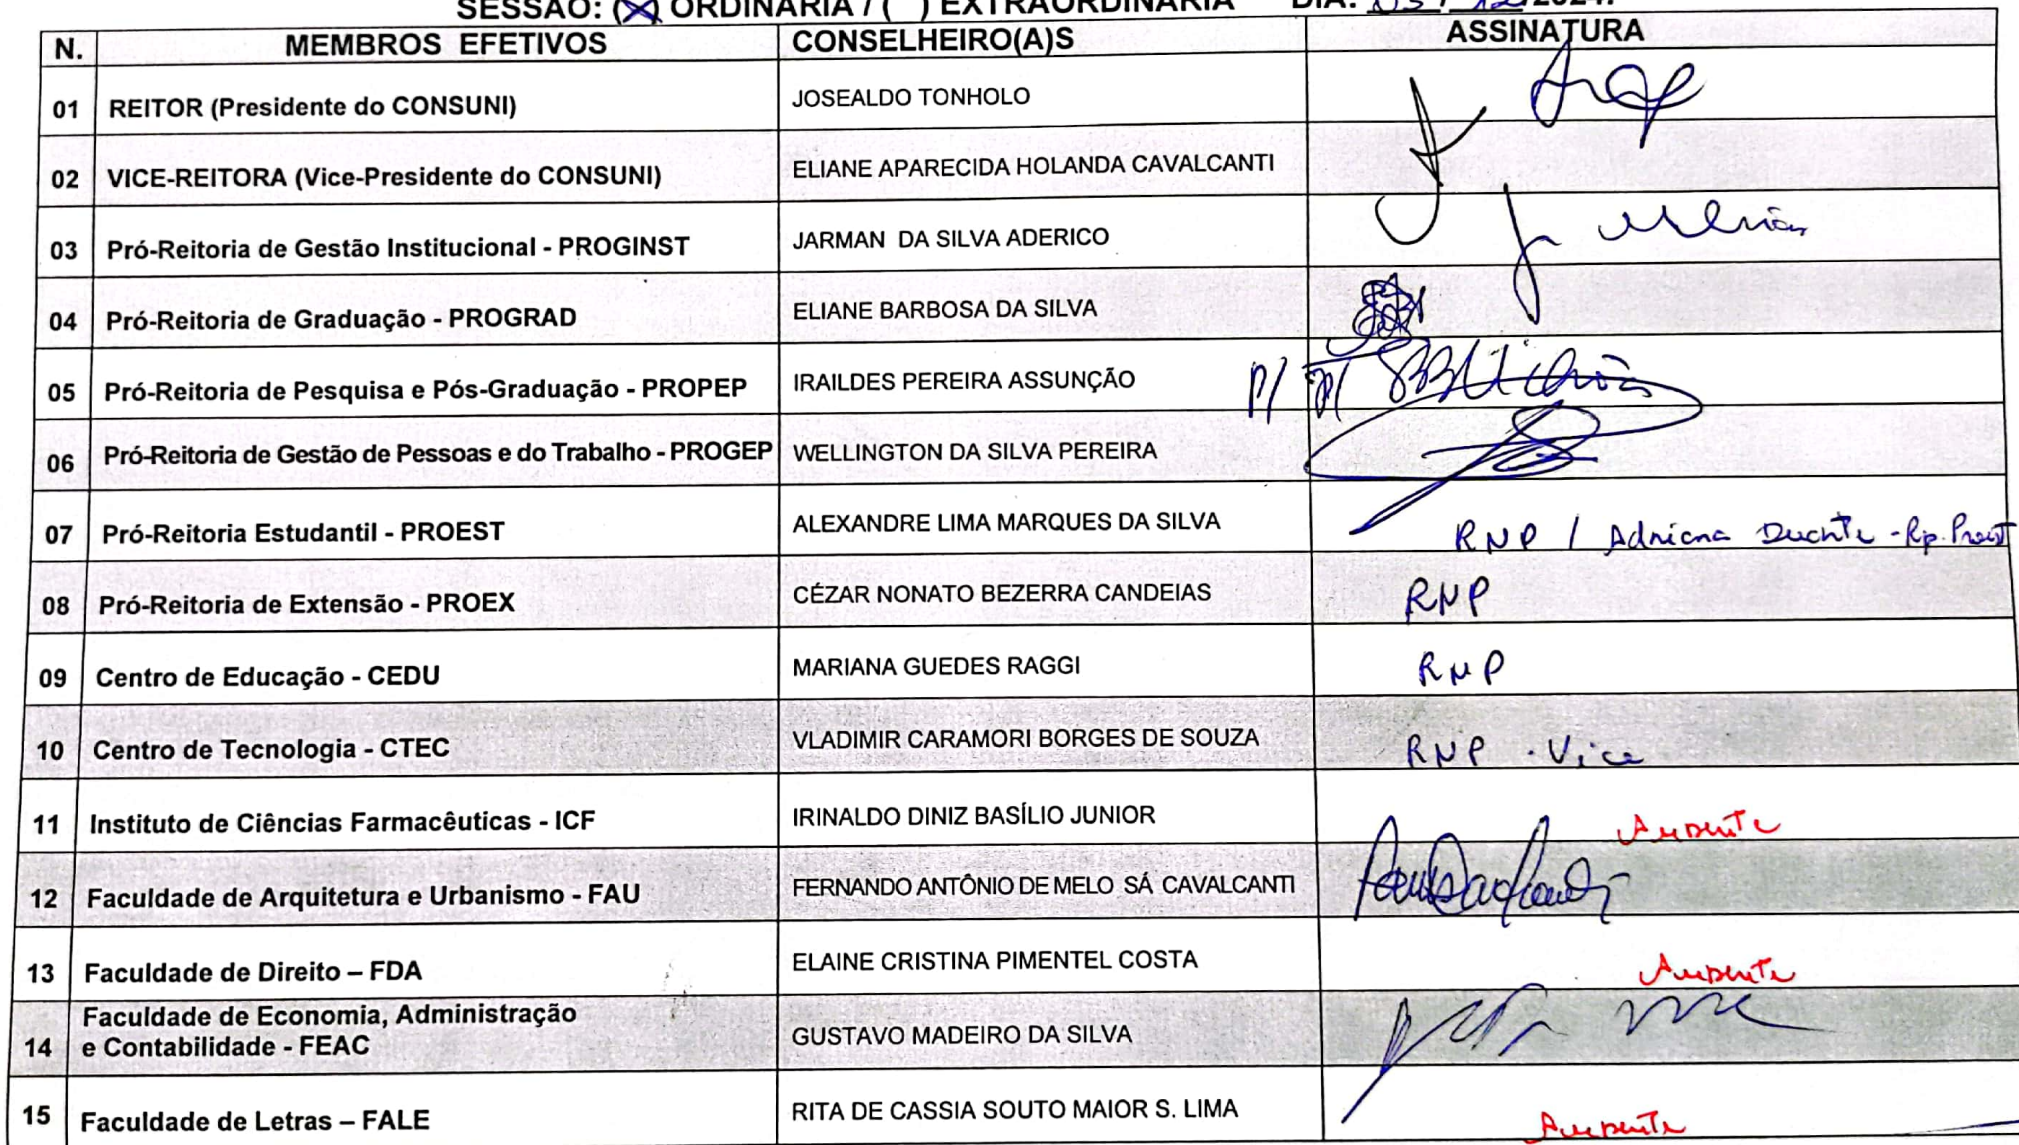 SESSÃO: (X) ORDINÁRIA / ( ) EXTRAORDINÁRIA DIA: 03 / 12 /2024.
N. MEMBROS EFETIVOS CONSELHEIRO(A)S ASSINATURA
01 REITOR (Presidente do CONSUNI) JOSEALDO TONHOLO
02 VICE-REITORA (Vice-Presidente do CONSUNI) ELIANE APARECIDA HOLANDA CAVALCANTI
03 Pró-Reitoria de Gestão Institucional - PROGINST JARMAN DA SILVA ADERICO
04 Pró-Reitoria de Graduação - PROGRAD ELIANE BARBOSA DA SILVA
05 Pró-Reitoria de Pesquisa e Pós-Graduação - PROPEP IRAILDES PEREIRA ASSUNÇÃO P/
06 Pró-Reitoria de Gestão de Pessoas e do Trabalho - PROGEP WELLINGTON DA SILVA PEREIRA
07 Pró-Reitoria Estudantil - PROEST ALEXANDRE LIMA MARQUES DA SILVA RNP / Adriana Duarte - Rp. Proest
08 Pró-Reitoria de Extensão - PROEX CÉZAR NONATO BEZERRA CANDEIAS RNP
09 Centro de Educação - CEDU MARIANA GUEDES RAGGI RNP
10 Centro de Tecnologia - CTEC VLADIMIR CARAMORI BORGES DE SOUZA RNP - Vice
11 Instituto de Ciências Farmacêuticas - ICF IRINALDO DINIZ BASÍLIO JUNIOR Ausente
12 Faculdade de Arquitetura e Urbanismo - FAU FERNANDO ANTÔNIO DE MELO SÁ CAVALCANTI
13 Faculdade de Direito – FDA ELAINE CRISTINA PIMENTEL COSTA Ausente
Faculdade de Economia, Administração
14 e Contabilidade - FEAC GUSTAVO MADEIRO DA SILVA
15 Faculdade de Letras – FALE RITA DE CASSIA SOUTO MAIOR S. LIMA Ausente